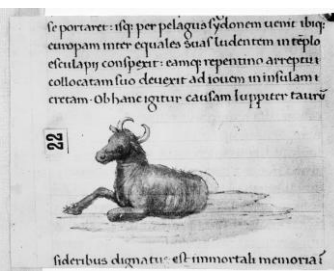 se portaret: isq; per pelagus sydonem uenit ibiq;
europam inter equales suas ludentem in tēplo
esculapij conspexit: eamq; repentino arreptu ı
collocatam suo deuexit ad iouem in insulam ı
cretam. Ob hanc igitur causam Iuppiter taurū
22
sideribus dignatus est immortali memoria ı